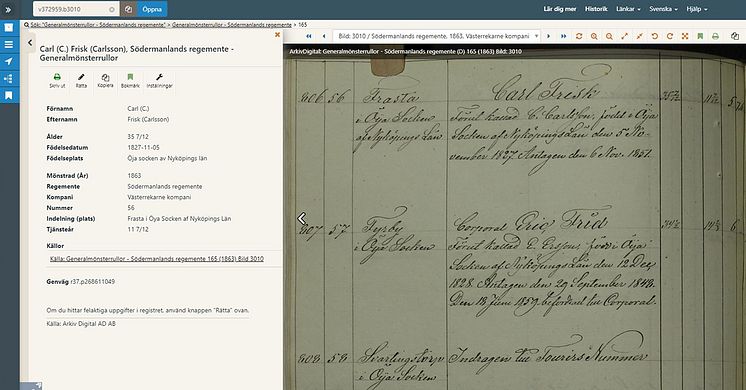 v372959.b3010
Öppna
Lär dig mer
Historik
Länkar
Svenska
Hjälp
Sök: "Generalmönsterrullor - Södermanlands regemente" > Generalmönsterrullor - Södermanlands regemente > 165
Carl (C.) Frisk (Carlsson), Södermanlands regemente -
Generalmönsterrullor
Skriv ut
Rätta
Kopiera
Bokmärk
Inställningar
Förnamn Carl (C.)
Efternamn Frisk (Carlsson)
Ålder 35 7/12
Födelsedatum 1827-11-05
Födelseplats Öja socken av Nyköpings län
Mönstrad (År) 1863
Regemente Södermanlands regemente
Kompani Västerrekarne kompani
Nummer 56
Indelning (plats) Frasta i Öja Socken af Nyköpings Län
Tjänsteår 11 7/12
Källor
Källa: Generalmönsterrullor - Södermanlands regemente 165 (1863) Bild 3010
Genväg r37.p268611049
Om du hittar felaktiga uppgifter i registret, använd knappen "Rätta" ovan.
Källa: Arkiv Digital AD AB
Bild: 3010 / Södermanlands regemente, 1863, Västerrekarne kompani
ArkivDigital: Generalmönsterrullor - Södermanlands regemente (D) 165 (1863) Bild: 3010
806 56 Frasta Carl Frisk 35 7/12 11 7/12
i Öja Socken Förut kallad C. Carlsson, född i Öja
af Nyköpings Län Socken af Nyköpings Län den 5 No-
vember 1827. Antagen den 6 Nov. 1851.
807 57 Tyrby Corporal Eric Frid 6
i Öja Socken Förut kallad E. Ersson, född i Öja
Socken af Nyköpings Län den 12 Dec.
1828. Antagen den 29 September 1848.
Den 18 Juni 1859 befordrad till Corporal.
808 58 Svarlingstorp Indragen till Nummer
i Öja Socken